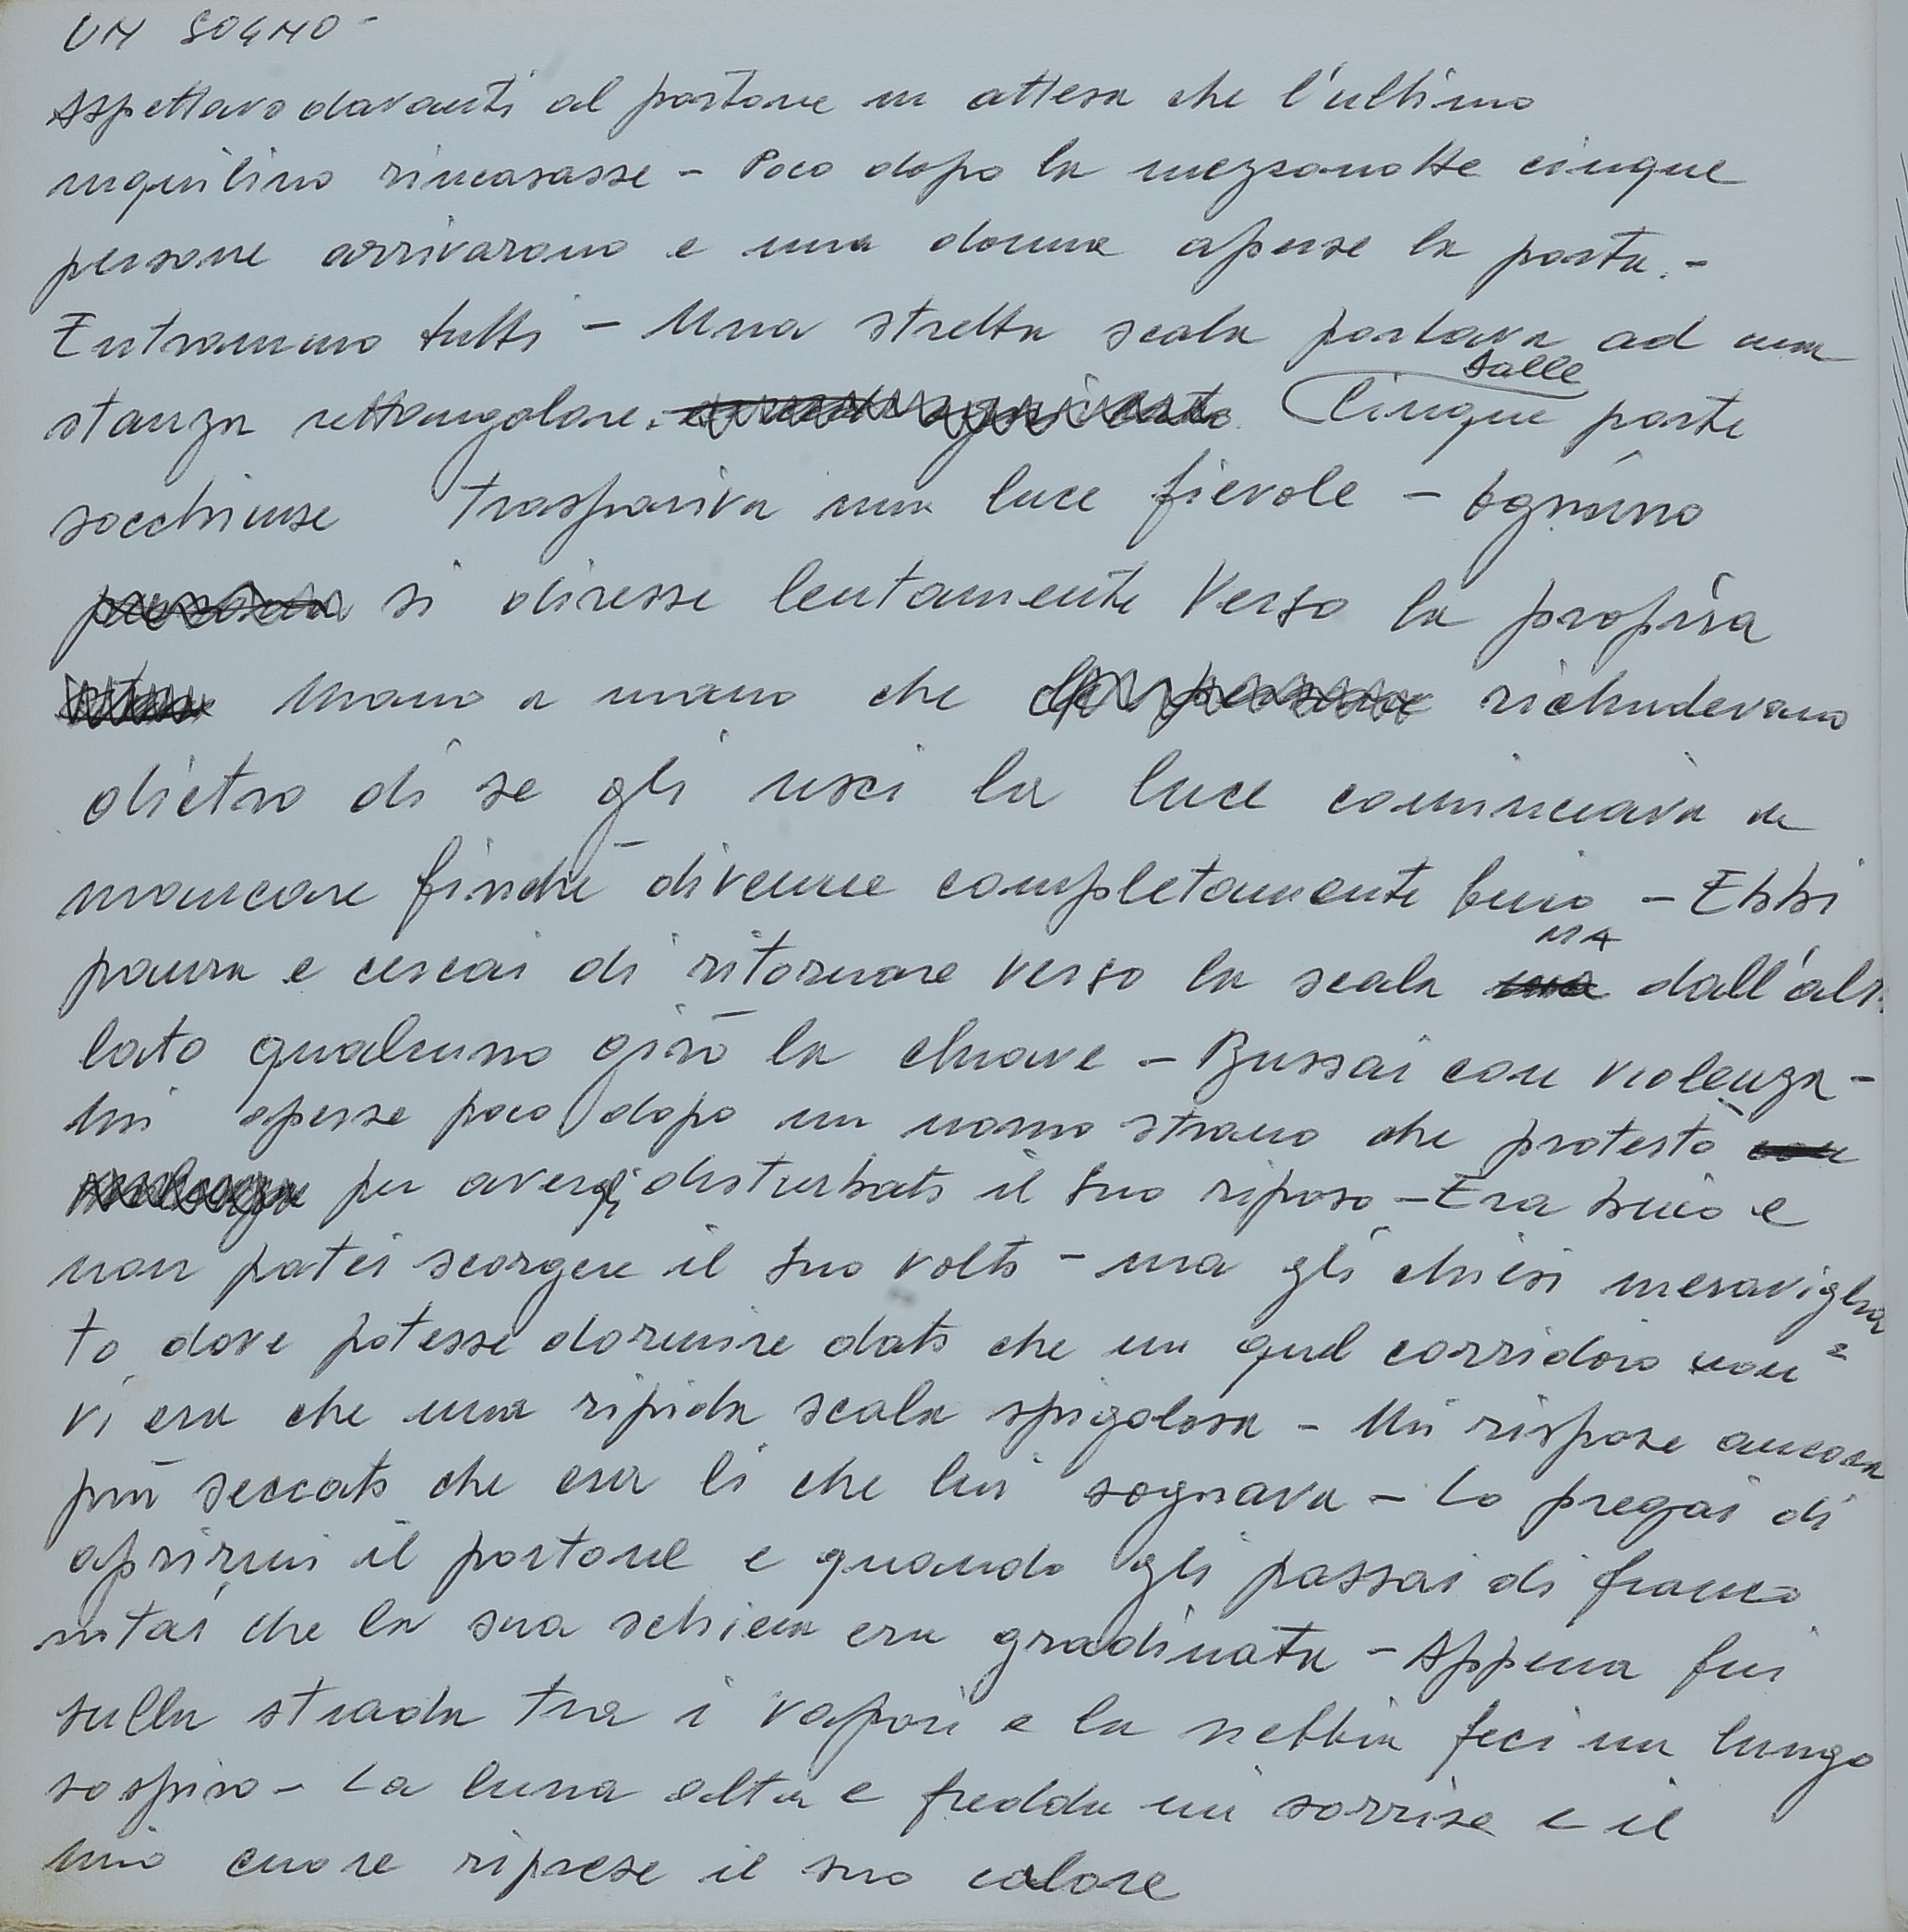 UN SOGNO -
Aspettavo davanti al portone in attesa che l'ultimo
inquilino rincasasse - Poco dopo la mezzanotte cinque
persone arrivarono e una donna aperse la porta. -
Entrammo tutti - Una stretta scala portava ad una
dalle
stanza rettangolare. Cinque porte
socchiuse traspariva una luce fievole - Ognuno
si diresse lentamente verso la propria
Mano a mano che richiudevano
dietro di se gli usci la luce cominciava a
mancare finchè divenne completamente buio - Ebbi
MA
paura e cercai di ritornare verso la scala ma dall'altr
lato qualcuno girò la chiave - Bussai con violenza -
Mi aperse poco dopo un uomo strano che protestò con
per avergli disturbato il suo riposo - Era buio e
non potei scorgere il suo volto - ma gli chiesi meraviglia
to dove potesse dormire dato che in quel corridoio non
vi era che una ripida scala spigolosa - Mi rispose ancora
più seccato che era li che lui sognava - Lo pregai di
aprirmi il portone e quando gli passai di fianco
notai che la sua schiena era gradinata - Appena fui
sulla strada tra i vapori e la nebbia feci un lungo
sospiro - La luna alta e fredda mi sorrise e il
mio cuore riprese il suo calore